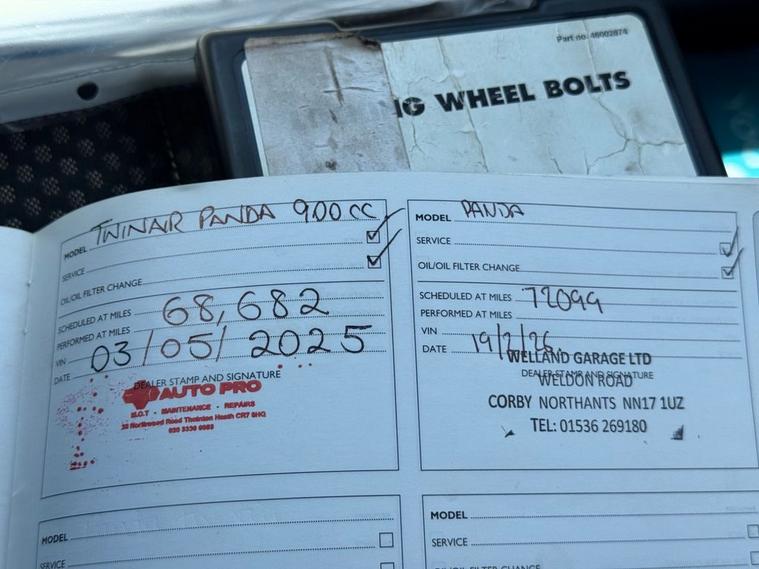 Part no. 46002874
NG WHEEL BOLTS
MODEL TWINAIR PANDA 900CC
SERVICE
OIL/OIL FILTER CHANGE
SCHEDULED AT MILES 68,682
PERFORMED AT MILES
VIN
DATE 03/05/2025
DEALER STAMP AND SIGNATURE
AUTO PRO
M.O.T - MAINTENANCE - REPAIRS
Northwood Road Thornton Heath CR7 8HQ
MODEL PANDA
SERVICE
OIL/OIL FILTER CHANGE
SCHEDULED AT MILES 72099
PERFORMED AT MILES
VIN
DATE 19/2/26
DEALER STAMP AND SIGNATURE
WELLAND GARAGE LTD
WELDON ROAD
CORBY NORTHANTS NN17 1UZ
TEL: 01536 269180
MODEL
SERVICE
MODEL
SERVICE
OIL/OIL FILTER CHANGE